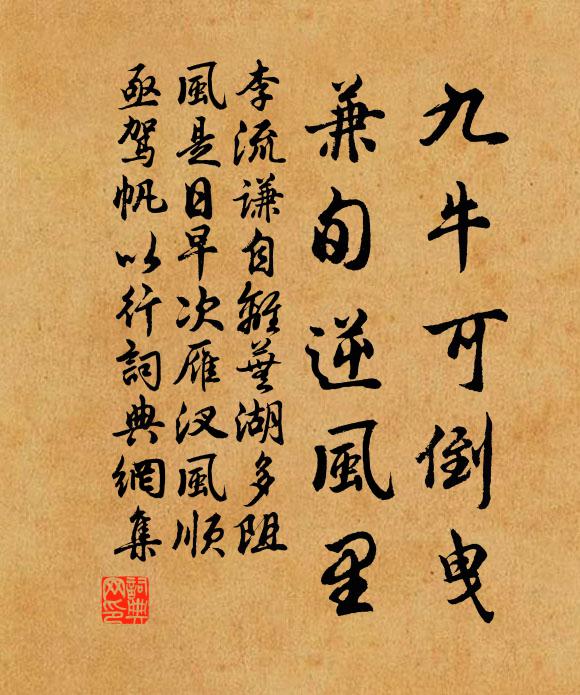 九牛可倒曳
兼旬逆風里
李流謙自離蕪湖多阻
風是日早次雁汊風順
亟駕帆以行詞典網集
詞典
网印